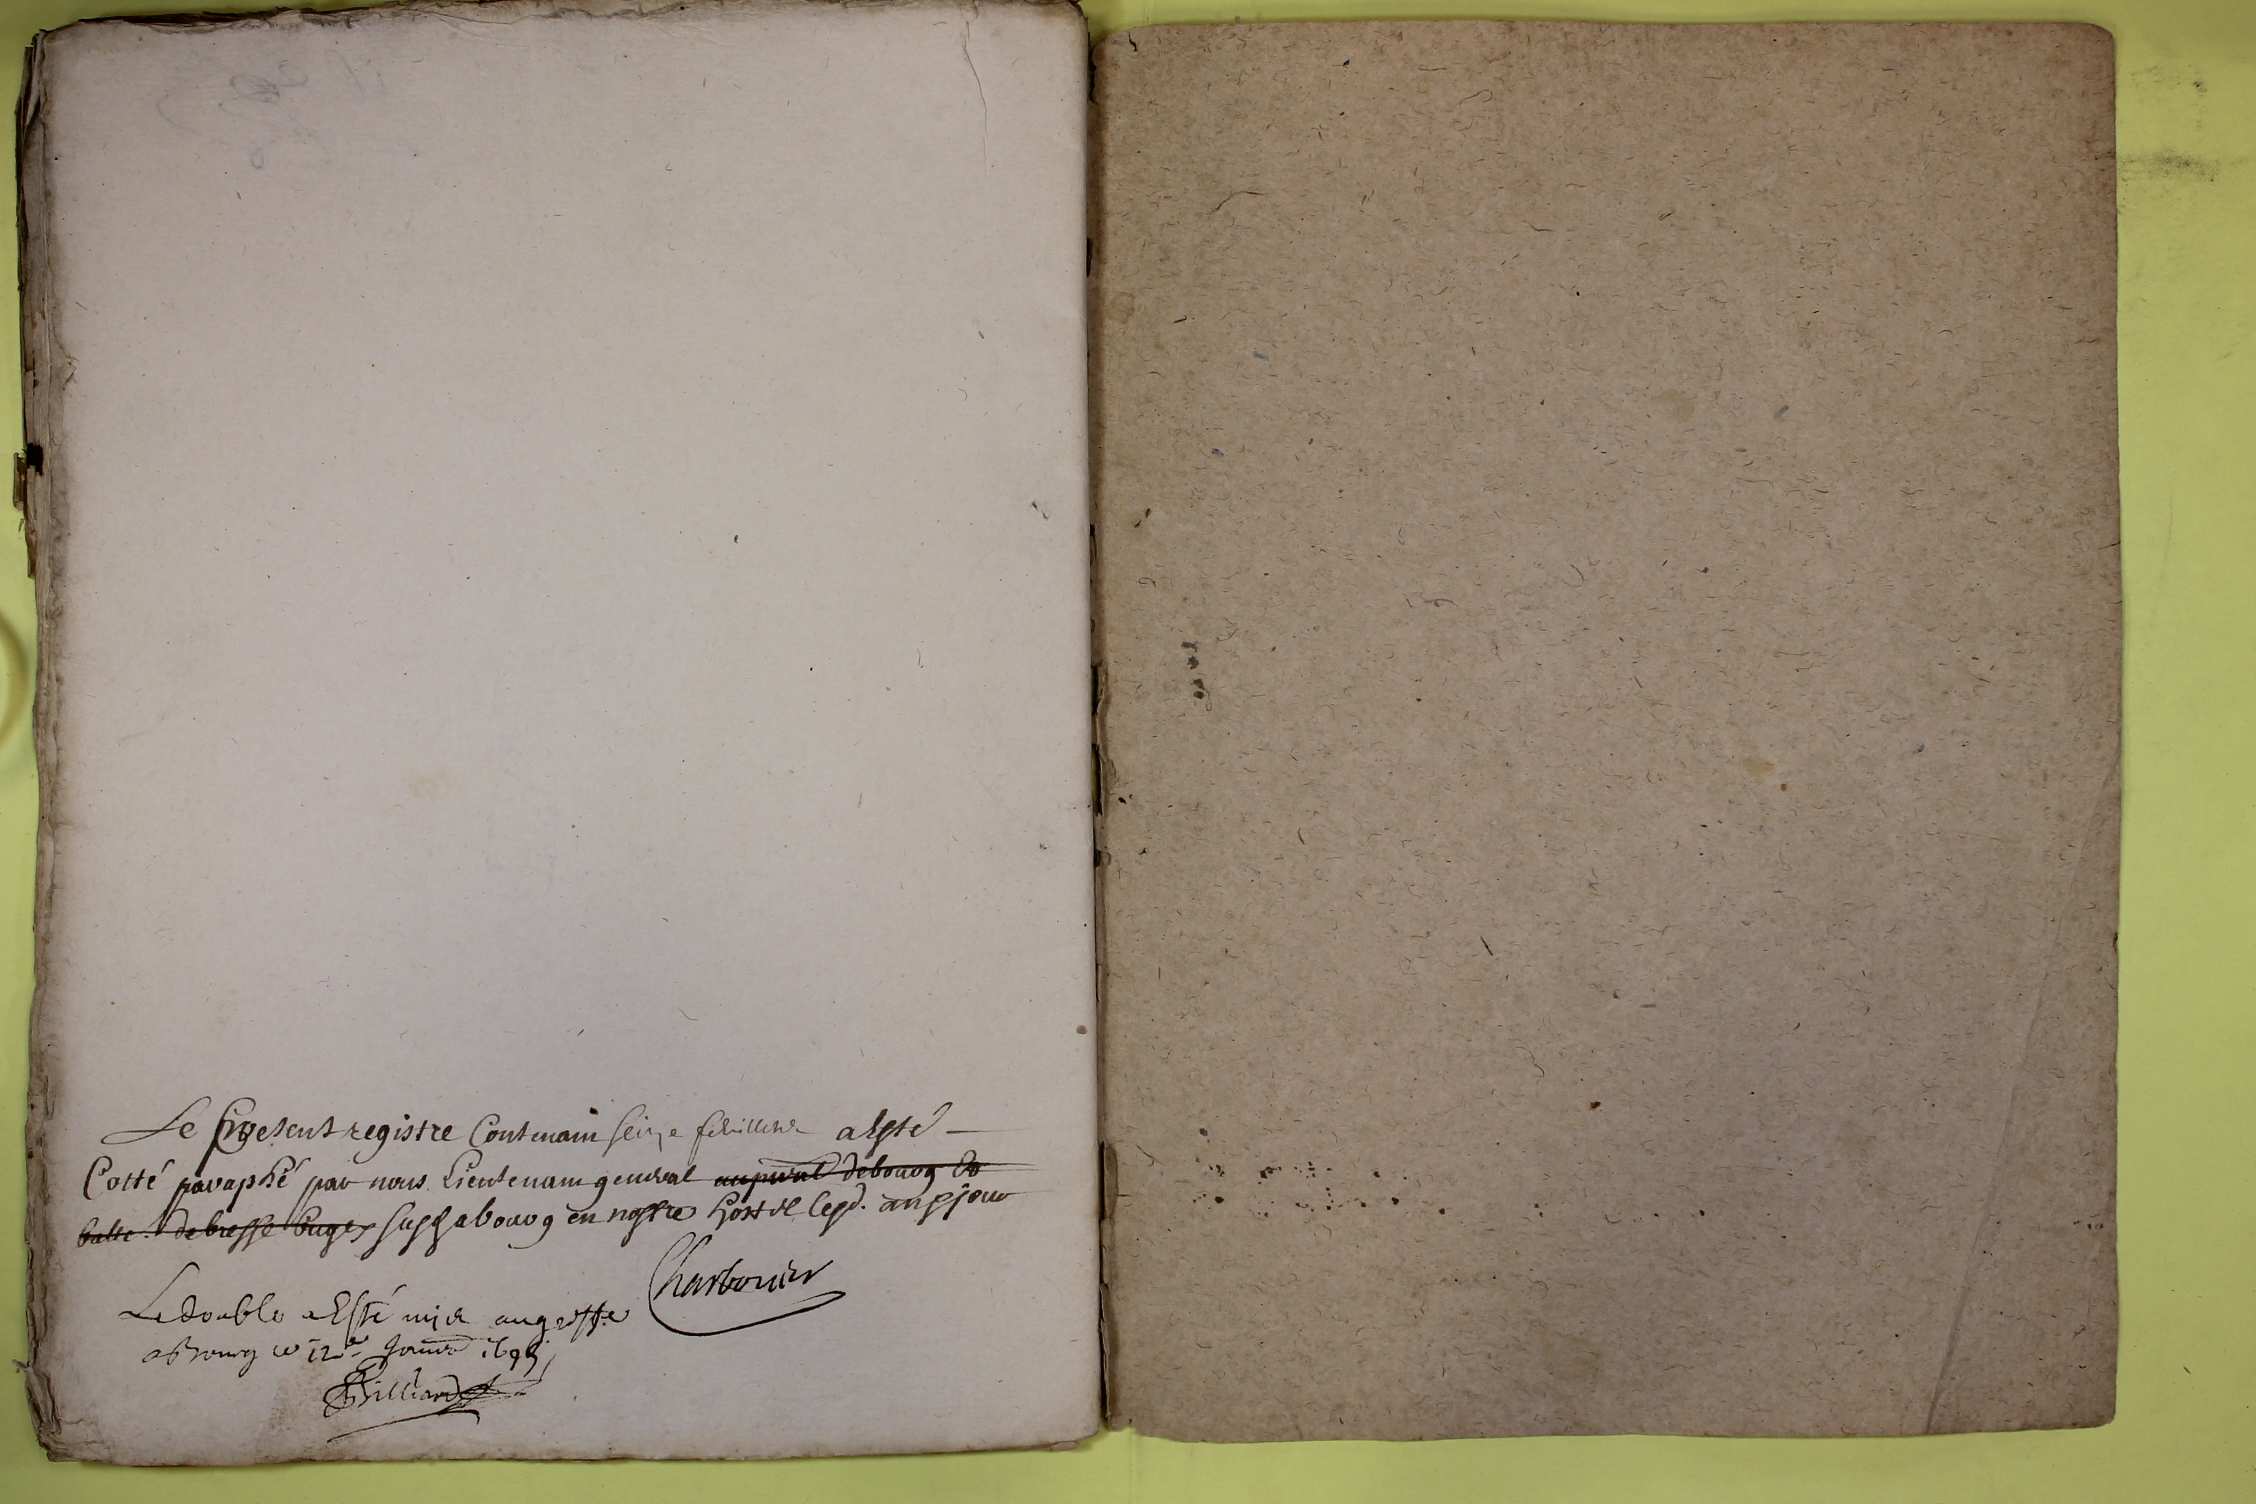 Le present registre Contenam seize feuillets a esté
Cotté paraphé par nous Lieutenam general au presid.al de bourg &
de bresse buges a bourg en nostre hostel les d. an & jour
Charbonier
Le double a Esté mis au greffe
a Bourg ce 12e Janvier 1695
Billiard